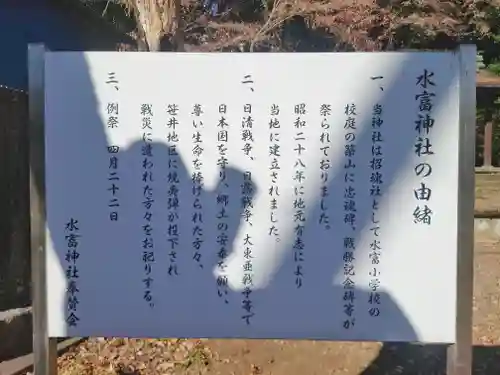 水富神社の由緒
一、当神社は招魂社として水富小学校の
校庭の築山に忠魂碑、戦勝記念碑等が
祭られておりました。
昭和二十八年に地元有志により
当地に建立されました。
二、日清戦争、日露戦争、大東亜戦争等で
日本国を守り、郷土の安泰を願い、
尊い生命を捧げられた方々、
笹井地区に焼夷弾が投下され
戦災に遭われた方々をお祀りする。
三、例祭 四月二十二日
水富神社奉賛会